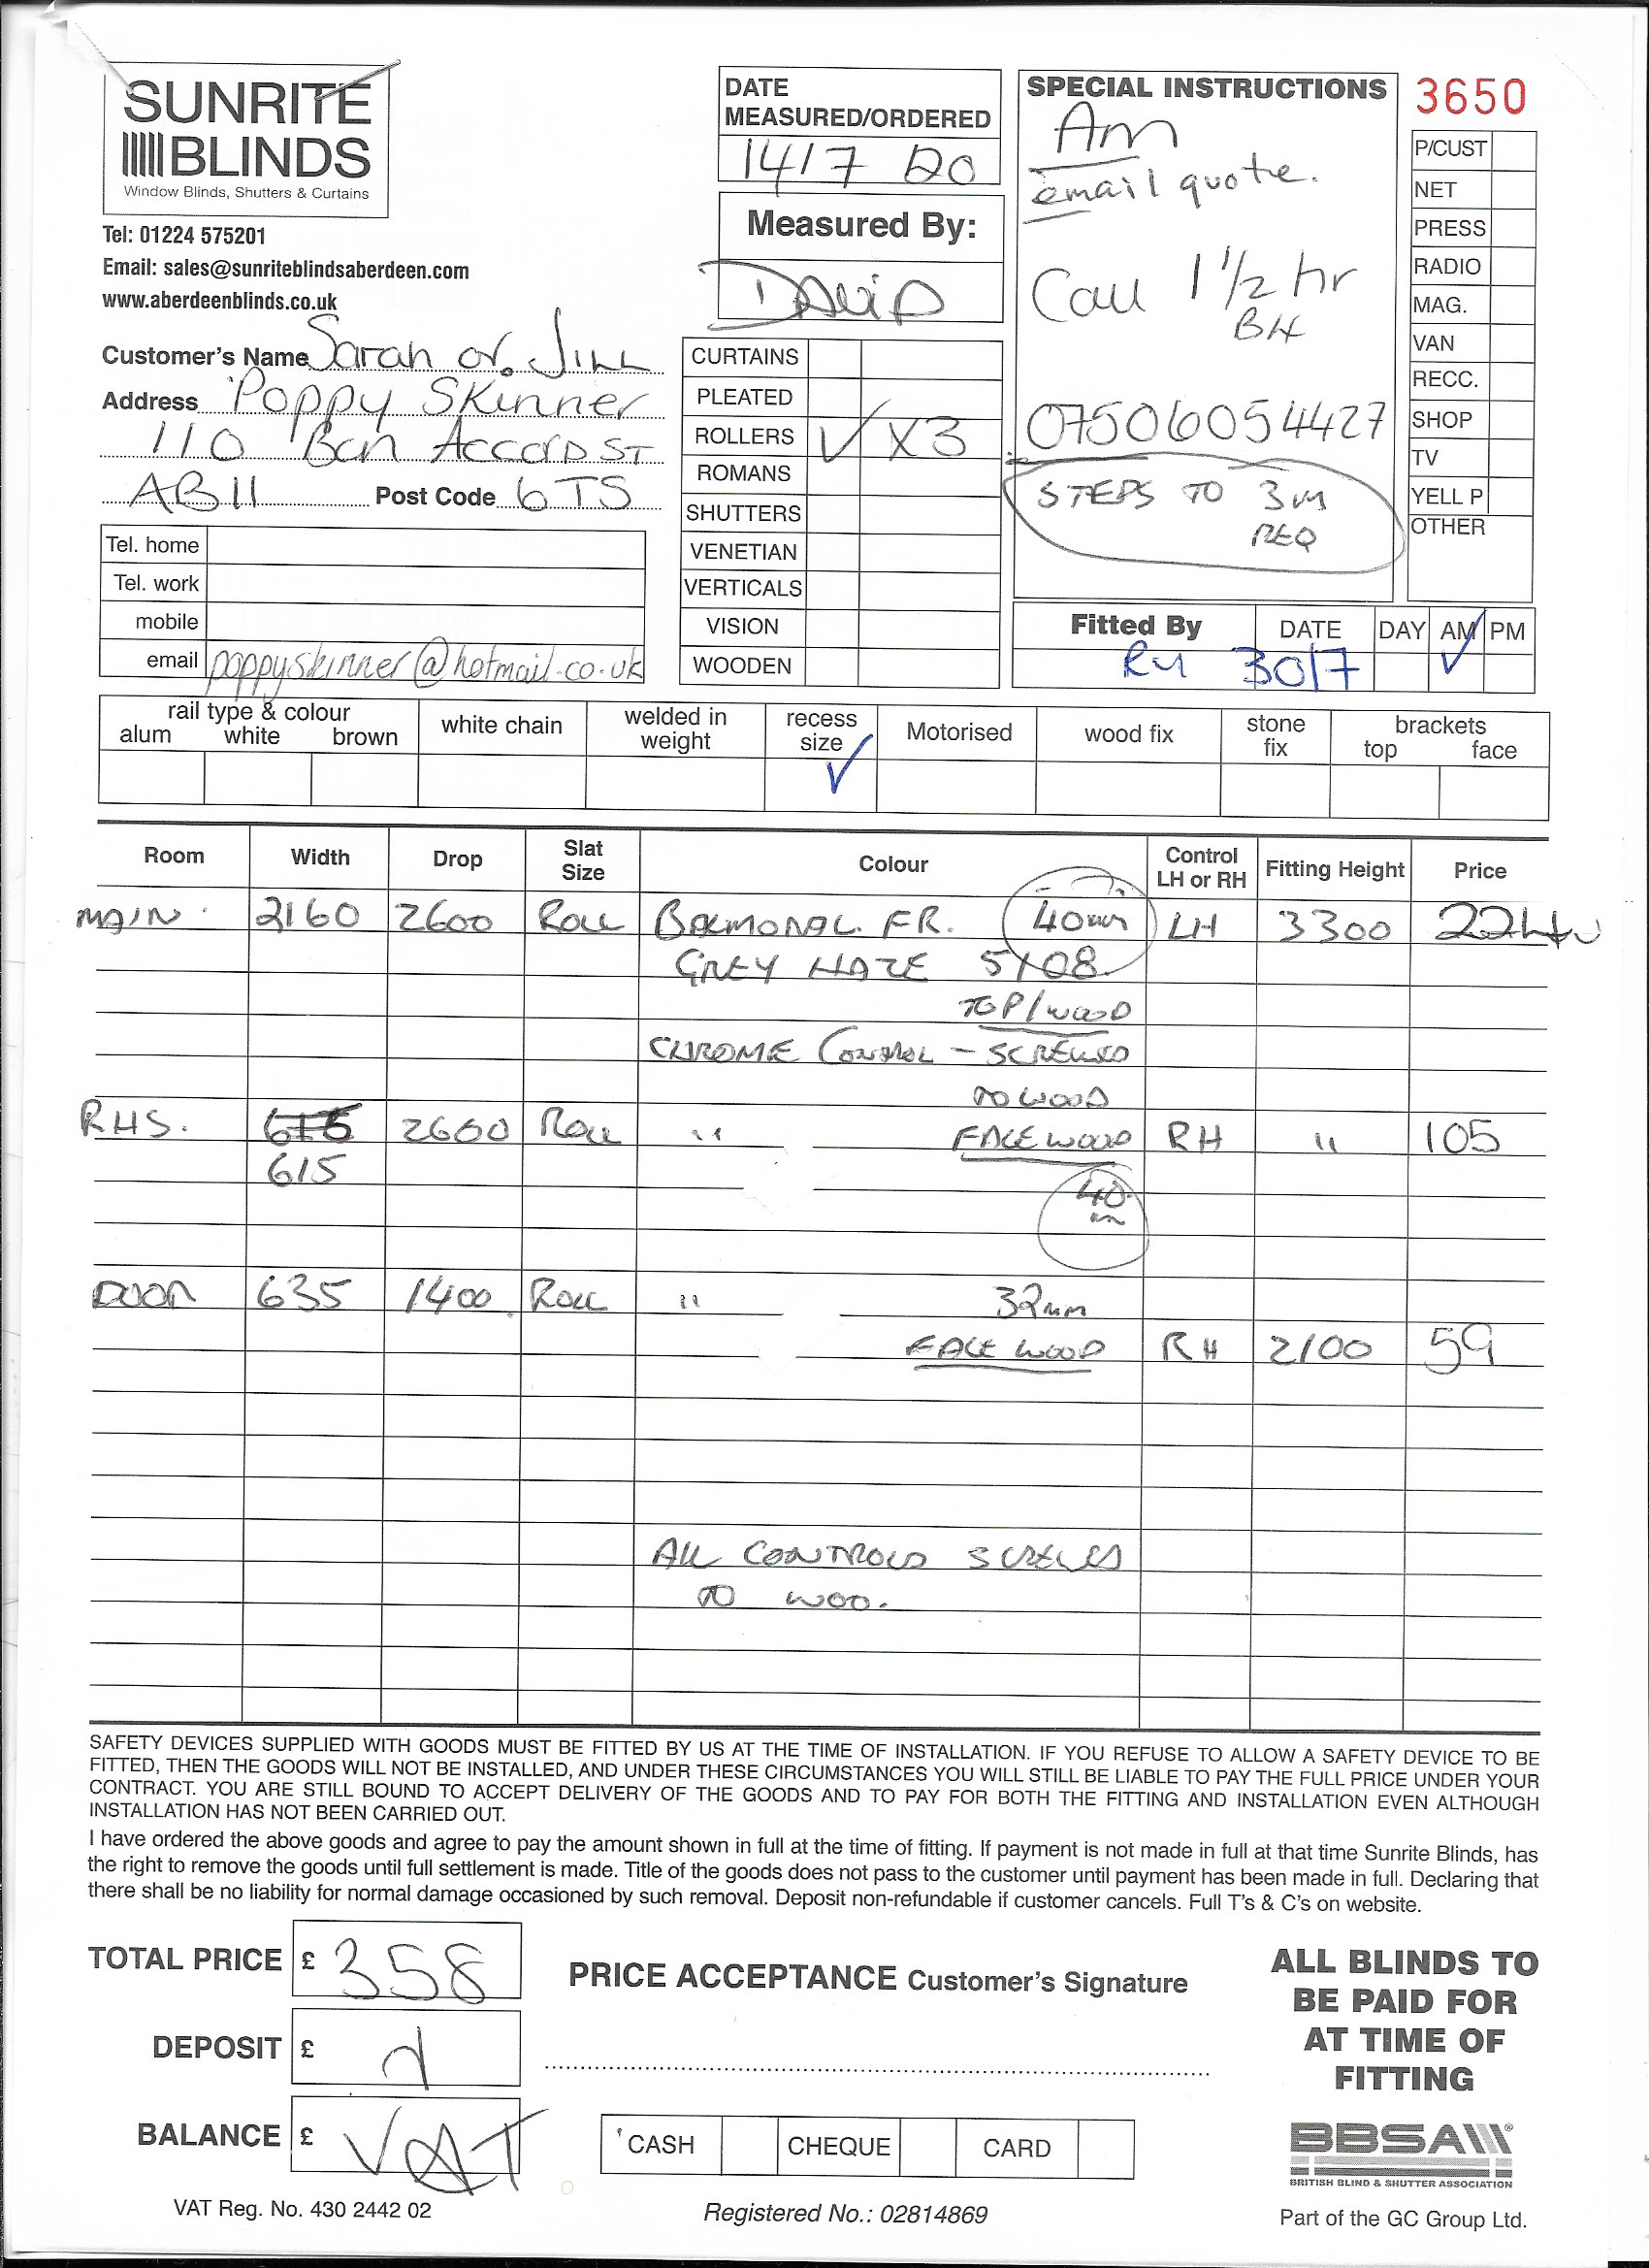 SUNRITE
BLINDS
Window Blinds, Shutters & Curtains
Tel: 01224 575201
Email: sales@sunriteblindsaberdeen.com
www.aberdeenblinds.co.uk
Customer's Name Sarah or Jill
Address Poppy Skinner
110 Bon Accord ST
AB11 Post Code 6TS
Tel. home
Tel. work
mobile
email poppyskinner@hotmail.co.uk
DATE
MEASURED/ORDERED
14/7 20
Measured By:
DAVID
CURTAINS
PLEATED
ROLLERS ✓ X3
ROMANS
SHUTTERS
VENETIAN
VERTICALS
VISION
WOODEN
SPECIAL INSTRUCTIONS
Am
email quote.
Call 1 1/2 hr
BH
07506054427
STEPS TO 3m
REQ
3650
P/CUST
NET
PRESS
RADIO
MAG.
VAN
RECC.
SHOP
TV
YELL P
OTHER
Fitted By DATE DAY AM PM
30/7 ✓
rail type & colour
alum white brown
white chain
welded in
weight
recess
size ✓
Motorised
wood fix
stone
fix
brackets
top face
Room Width Drop Slat Size Colour Control LH or RH Fitting Height Price
MAIN. 2160 2600 ROLL BALMORAL FR. 40mm LH 3300
GREY HAZE 5108
TOP/WOOD
CHROME CONTROL - SCREWED
TO WOOD
RHS. 2600 ROLL " FACE WOOD RH " 105
615
40
m
DOOR 635 1400 ROLL " 32mm
FACE WOOD RH 2100 59
ALL CONTROLS SCREWED
TO WOO.
SAFETY DEVICES SUPPLIED WITH GOODS MUST BE FITTED BY US AT THE TIME OF INSTALLATION. IF YOU REFUSE TO ALLOW A SAFETY DEVICE TO BE
FITTED, THEN THE GOODS WILL NOT BE INSTALLED, AND UNDER THESE CIRCUMSTANCES YOU WILL STILL BE LIABLE TO PAY THE FULL PRICE UNDER YOUR
CONTRACT. YOU ARE STILL BOUND TO ACCEPT DELIVERY OF THE GOODS AND TO PAY FOR BOTH THE FITTING AND INSTALLATION EVEN ALTHOUGH
INSTALLATION HAS NOT BEEN CARRIED OUT.
I have ordered the above goods and agree to pay the amount shown in full at the time of fitting. If payment is not made in full at that time Sunrite Blinds, has
the right to remove the goods until full settlement is made. Title of the goods does not pass to the customer until payment has been made in full. Declaring that
there shall be no liability for normal damage occasioned by such removal. Deposit non-refundable if customer cancels. Full T's & C's on website.
TOTAL PRICE £ 358
DEPOSIT £
BALANCE £ VAT
VAT Reg. No. 430 2442 02
PRICE ACCEPTANCE Customer's Signature
CASH CHEQUE CARD
Registered No.: 02814869
ALL BLINDS TO
BE PAID FOR
AT TIME OF
FITTING
BBSA
BRITISH BLIND & SHUTTER ASSOCIATION
Part of the GC Group Ltd.